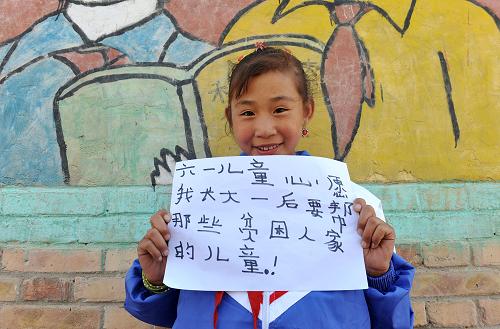 六一儿童心愿
我大大一后要帮
那些贫困人家
的儿童.!